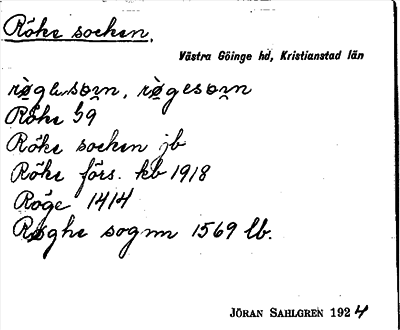 Röke socken.
Västra Göinge hd, Kristianstad län
Röke
Röke socken jb
Röke förs. kb 1918
Röge 1414
Røghe sognn 1569 lb.
JÖRAN SAHLGREN 1924